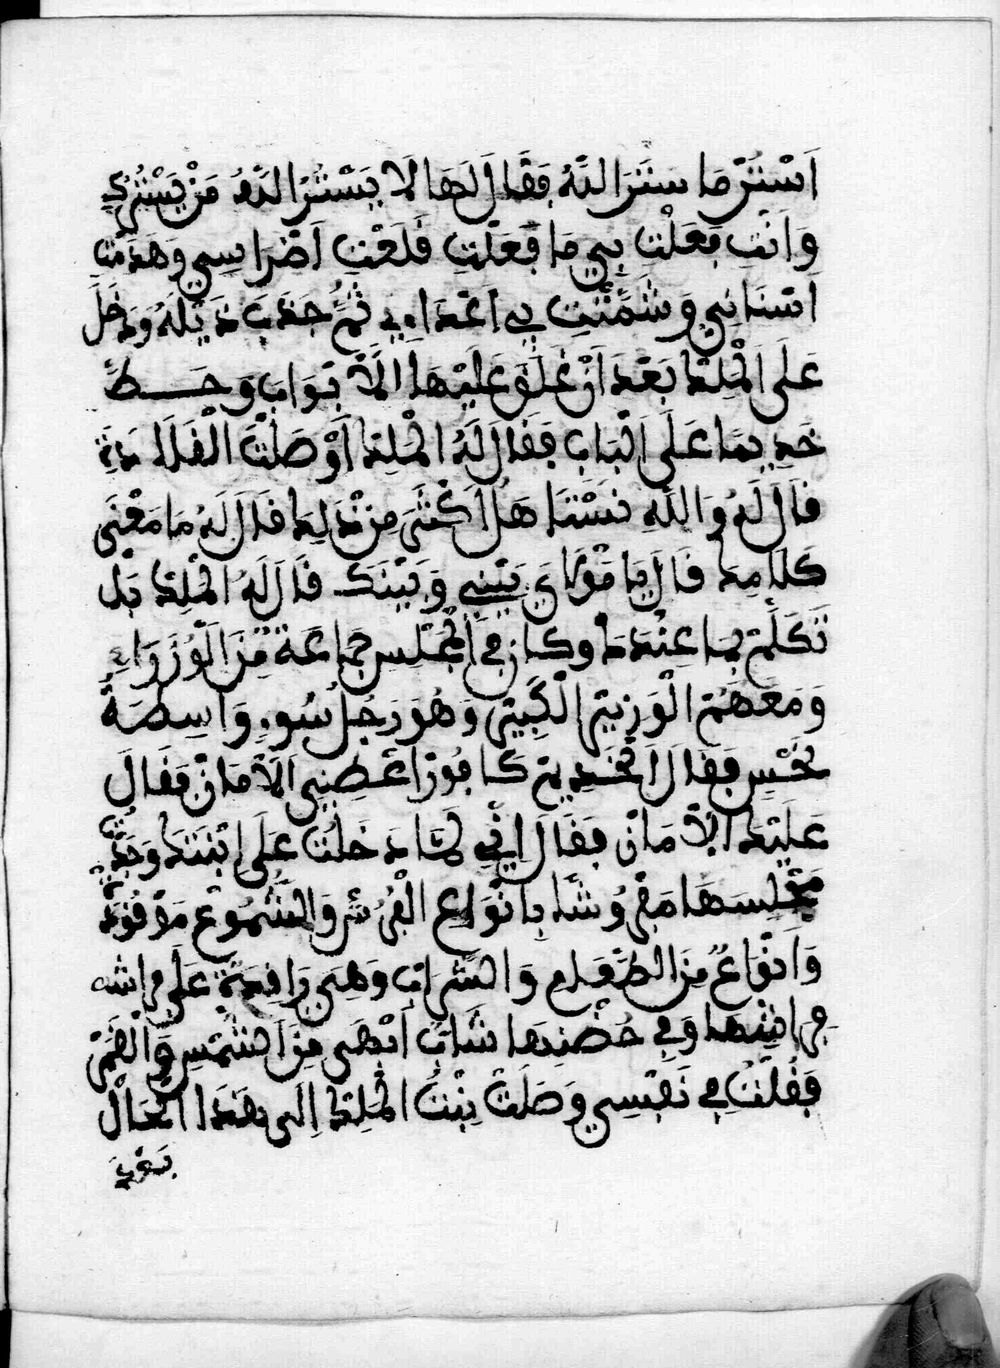 اَسْتُرْ مَا سَتَرَ اللَّهُ فَقَالَ لَهَا لَا يَسْتُرُ اللَّهُ مَنْ يَسْتُرُكِ
وَأَنْتِ فَعَلْتِ بِي مَا فَعَلْتِ قَلَعْتِ أَضْرَاسِي وَهَدَمْتِ
أَسْنَانِي وَشَمَّتِّ بِي أَعْدَاءِي ثُمَّ جَذَبَ ذَيْلَهُ وَدَخَلَ
عَلَى الْمَلِكِ بَعْدَ أَنْ غَلَّقَ عَلَيْهَا الْأَبْوَابَ وَحَطَّ
خَدِيمًا عَلَى الْبَابِ فَقَالَ لَهُ الْمَلِكُ أَوْصَلْتَ الْقَلَادَةَ
قَالَ لَهُ وَاللَّهِ نَسْتَاهَلُ أَكْثَرَ مِنْ ذَلِكَ قَالَ لَهُ مَا مَعْنَى
كَلَامِكَ قَالَ يَا مَوْلَايَ بَيْنِي وَبَيْنَكَ قَالَ لَهُ الْمَلِكُ بَلْ
تَكَلَّمْ بِمَا عِنْدَكَ وَكَانَ فِي الْمَجْلِسِ جَمَاعَةٌ مِنَ الْوُزَرَاءِ
وَمَعَهُمُ الْوَزِيرُ الْكَبِيرُ وَهُوَ رَجُلُ سُوءٍ وَاسِطَةُ
نَحْسٍ فَقَالَ الْخَدِيمُ كَافُورْ أَعْطِنِي الْأَمَانْ فَقَالَ
عَلَيْكَ الْأَمَانْ فَقَالَ إِنِّي لَمَّا دَخَلْتُ عَلَى ابْنَتِكَ وَجَدْتُ
مَجْلِسَهَا مَفْرُوشًا بِأَنْوَاعِ الْفُرُشِ وَالشُّمُوعُ مَوْقُودَةٌ
وَأَنْوَاعٌ مِنَ الطَّعَامِ وَالشَّرَابِ وَهِيَ رَاقِدَةٌ عَلَى فراشه
فِرَاشِهَا وَفِي حُضْنِهَا شَابٌّ أَبْهَى مِنَ الشَّمْسِ وَالْقَمَرْ
فَقُلْتُ فِي نَفْسِي وَصَلَتْ بِنْتُ الْمَلِكِ إِلَى هَذَا الْحَالْ